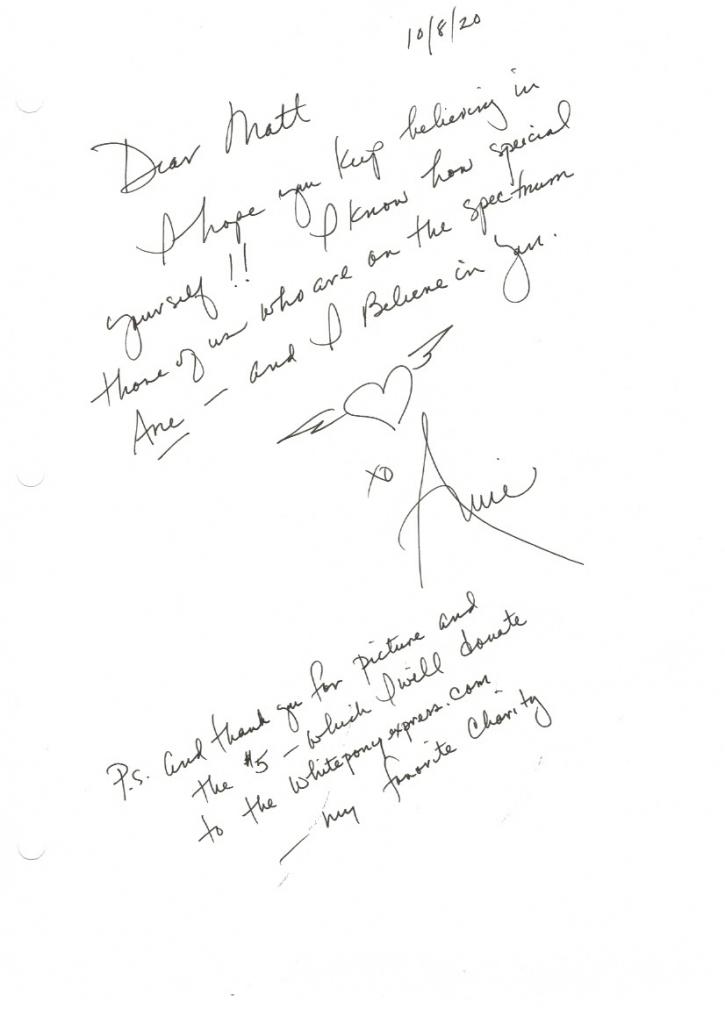 10/8/20
Dear Matt
I hope you keep believing in
yourself!! I know how speicial
those of us who are on the spectrum
Are — and I Believe in you.
xo
P.S. And thank you for picture and
the $5 — which I will donate
to the whiteponyexpress.com
— my favorite Charity